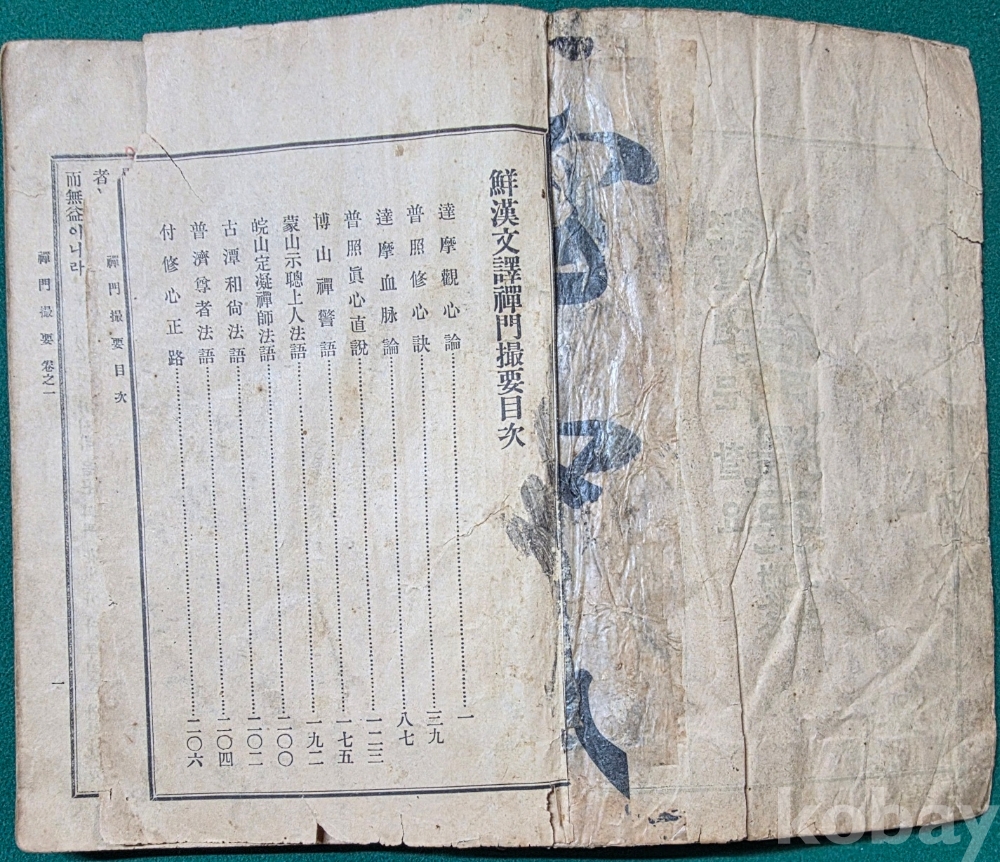 鮮漢文譯禪門撮要目次
達摩觀心論……一
普照修心訣……三九
達摩血脉論……八七
普照眞心直說……一二三
博山禪警語……一七五
蒙山示聰上人法語……一九二
皖山定凝禪師法語……二〇〇
古潭和尙法語……二〇二
普濟尊者法語……二〇四
付修心正路……二〇六
禪門撮要目次
者、
而無益이니라
禪門撮要 卷之一
一
kobay